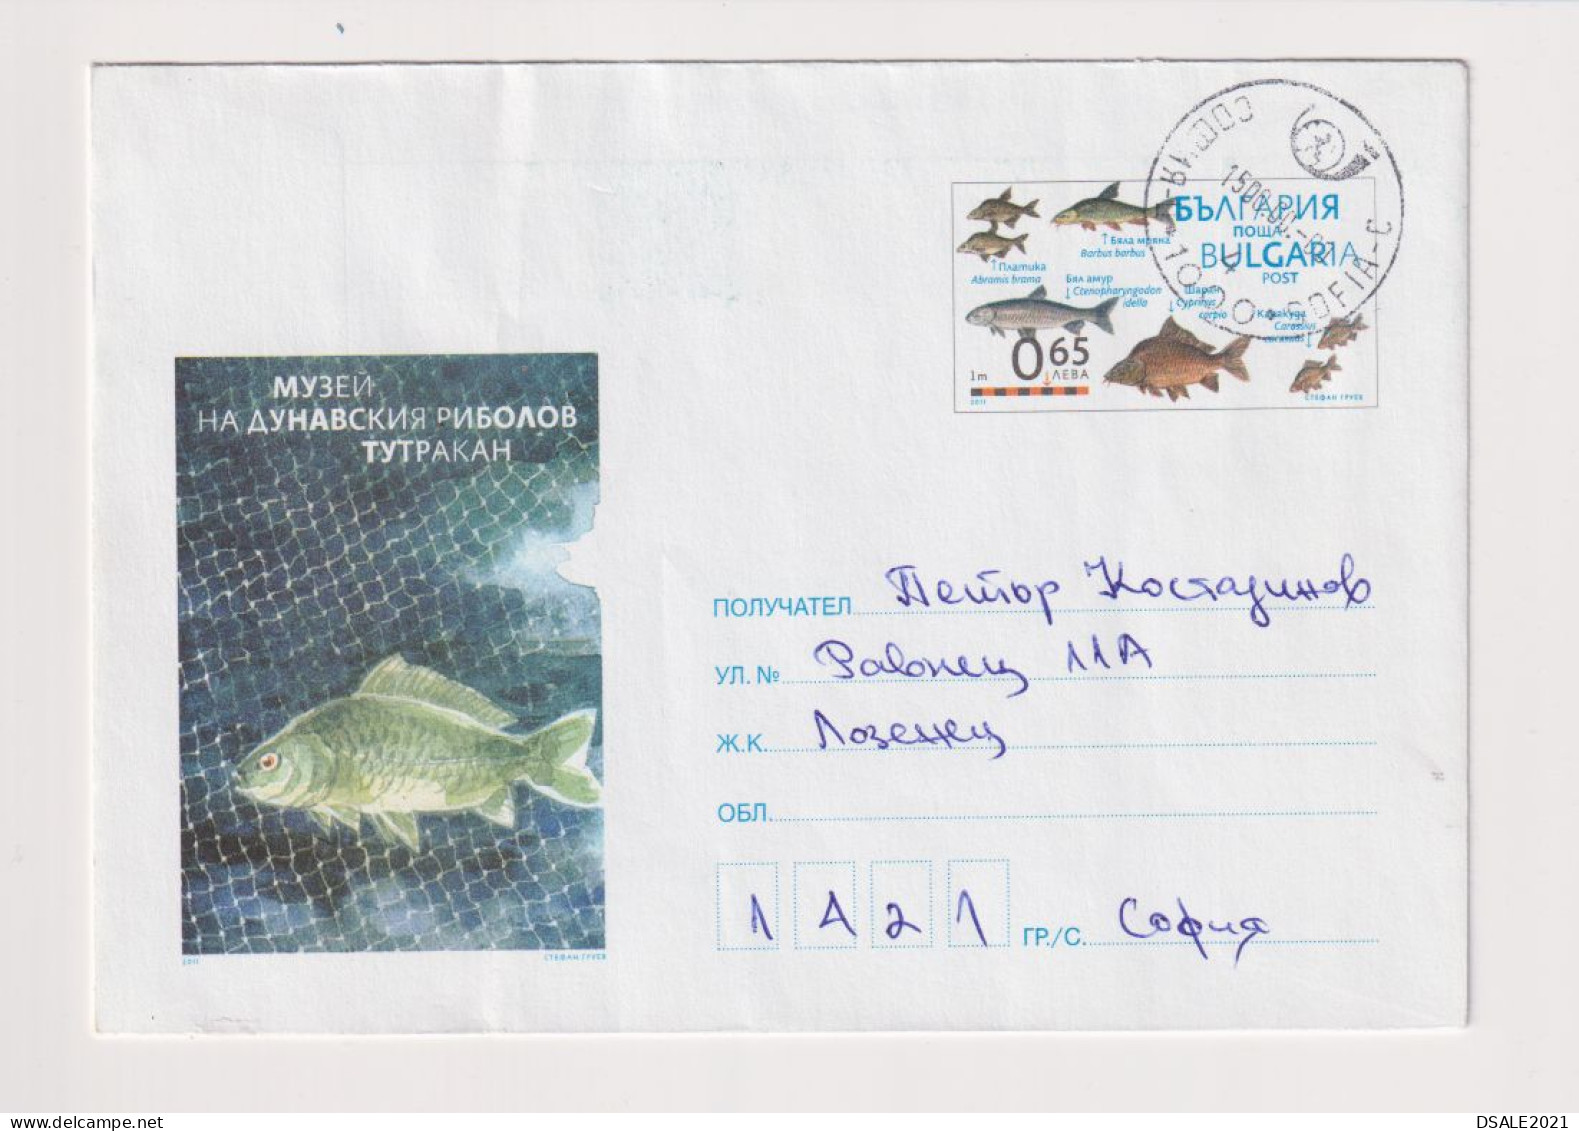 СОФИЯ-Ц
1000 • SOFIA-C
БЪЛГАРИЯ
ПОЩА
BULGARIA
POST
↑ Бяла мряна
Barbus barbus
↑ Платика
Abramis brama
Бял амур
↓ Ctenopharyngodon
idella
Шаран
↓ Cyprinus
carpio
Каракуда
Carassius
carassius ↓
0 65
ЛЕВА
1m
2011
СТЕФАН ГРУЕВ
МУЗЕЙ
НА ДУНАВСКИЯ РИБОЛОВ
ТУТРАКАН
2011
СТЕФАН ГРУЕВ
ПОЛУЧАТЕЛ Петър Костадинов
УЛ. № 11А
Ж.К. Лозенец
ОБЛ.
1421 ГР./С. София
DSALE2021